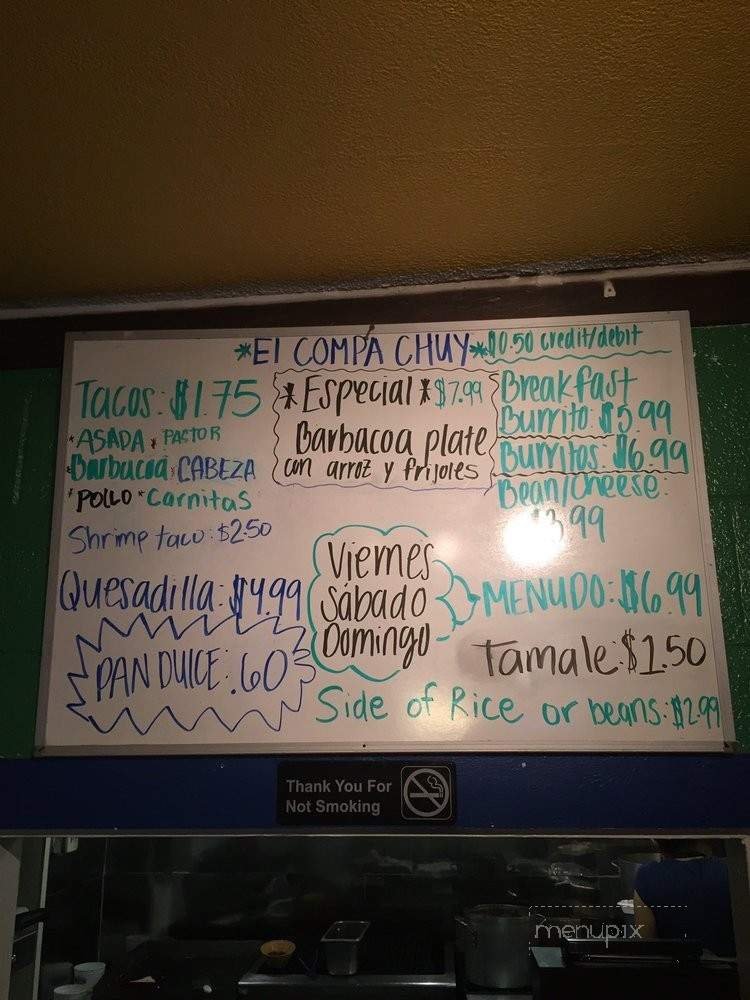 *El COMPA CHUY*
$0.50 credit/debit
Tacos: $1.75
*ASADA *PASTOR
*Barbacoa *CABEZA
*POLLO *Carnitas
Shrimp taco: $2.50
Quesadilla: $4.99
PAN DULCE: .60
*Especial* $7.99
Barbacoa plate
con arroz y frijoles
Breakfast
Burrito: $5.99
Burritos: $6.99
Bean/Cheese:
$3.99
Viernes
Sábado
Domingo
MENUDO: $6.99
Tamale: $1.50
Side of Rice or beans: $2.99
Thank You For
Not Smoking
menupix